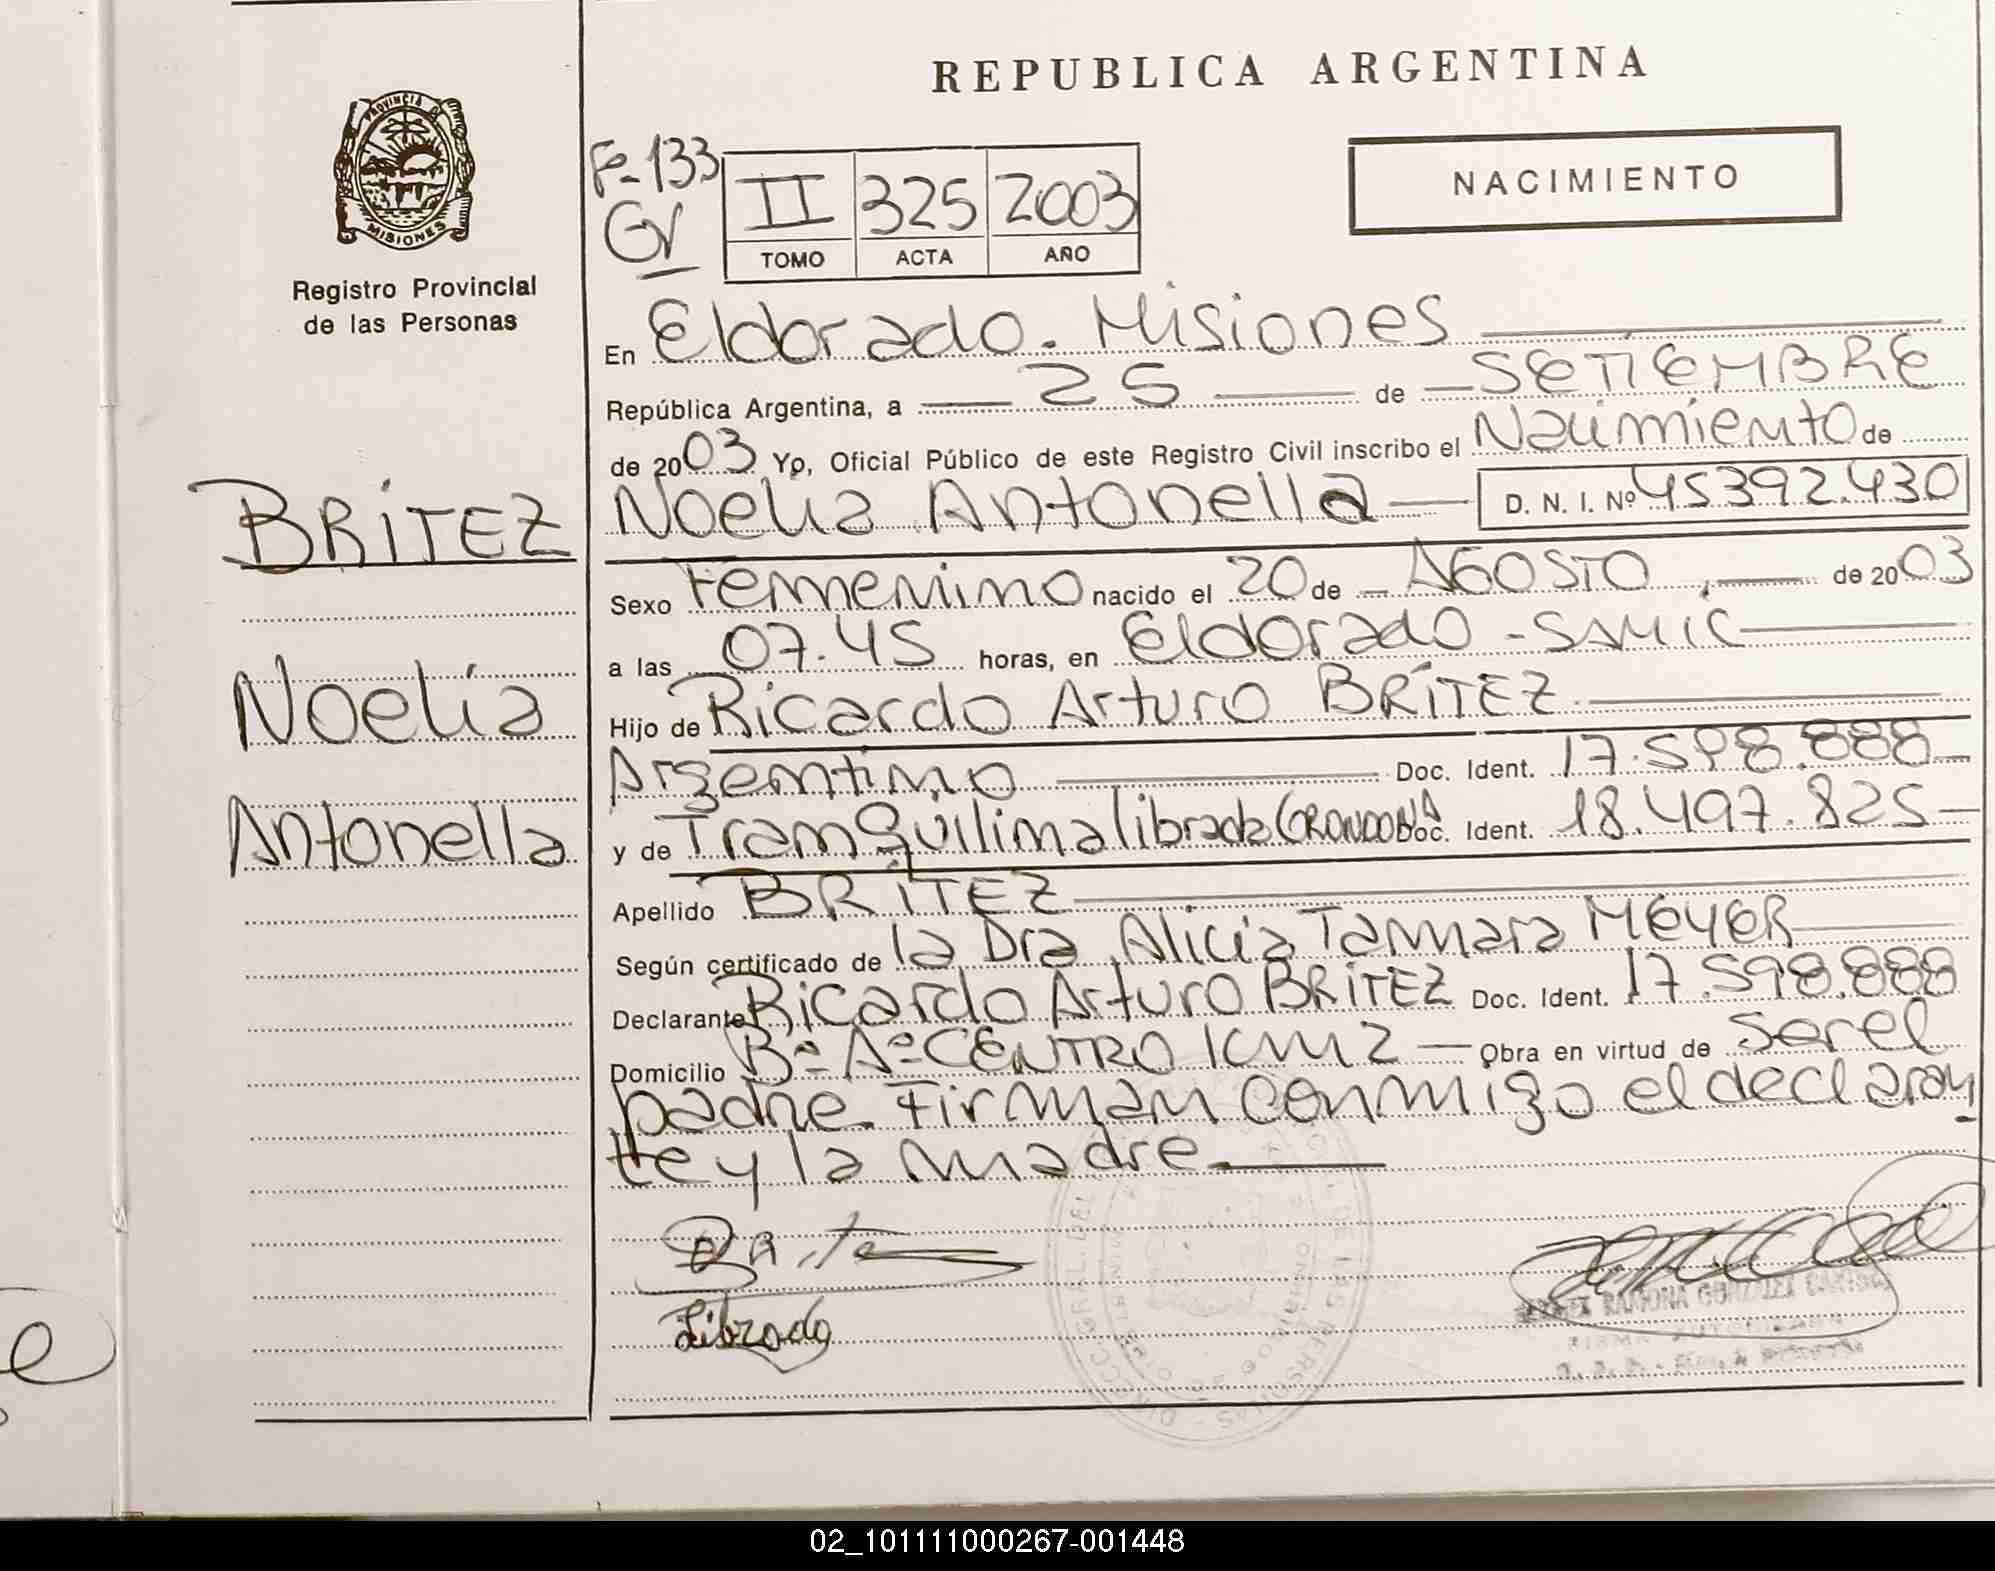 REPUBLICA ARGENTINA
PROVINCIA D
MISIONES
Registro Provincial
de las Personas
Fº-133
GV
II 325 2003
TOMO ACTA AÑO
NACIMIENTO
En Eldorado. Misiones
República Argentina, a 25 de SETIEMBRE
de 2003 Yo, Oficial Público de este Registro Civil inscribo el Nacimiento de
Noelia Antonella D. N. I. Nº 45392.430
Sexo Femenino nacido el 20 de AGOSTO de 2003
a las 07.45 horas, en Eldorado - SAMIC
Hijo de Ricardo Arturo BRÍTEZ
Argentino Doc. Ident. 17.598.888
y de Tranquilina librada CORONDONA Doc. Ident. 18.497.825
Apellido BRÍTEZ
Según certificado de la Dra Alicia Tamara MEYER
Declarante Ricardo Arturo BRÍTEZ Doc. Ident. 17.598.888
Domicilio Bº Aº CENTRO KM 2 Obra en virtud de ser el
padre. Firman conmigo el declaran
te y la madre
BRÍTEZ
Noelia
Antonella
Librada
RAMONA GONZALEZ
02_101111000267-001448